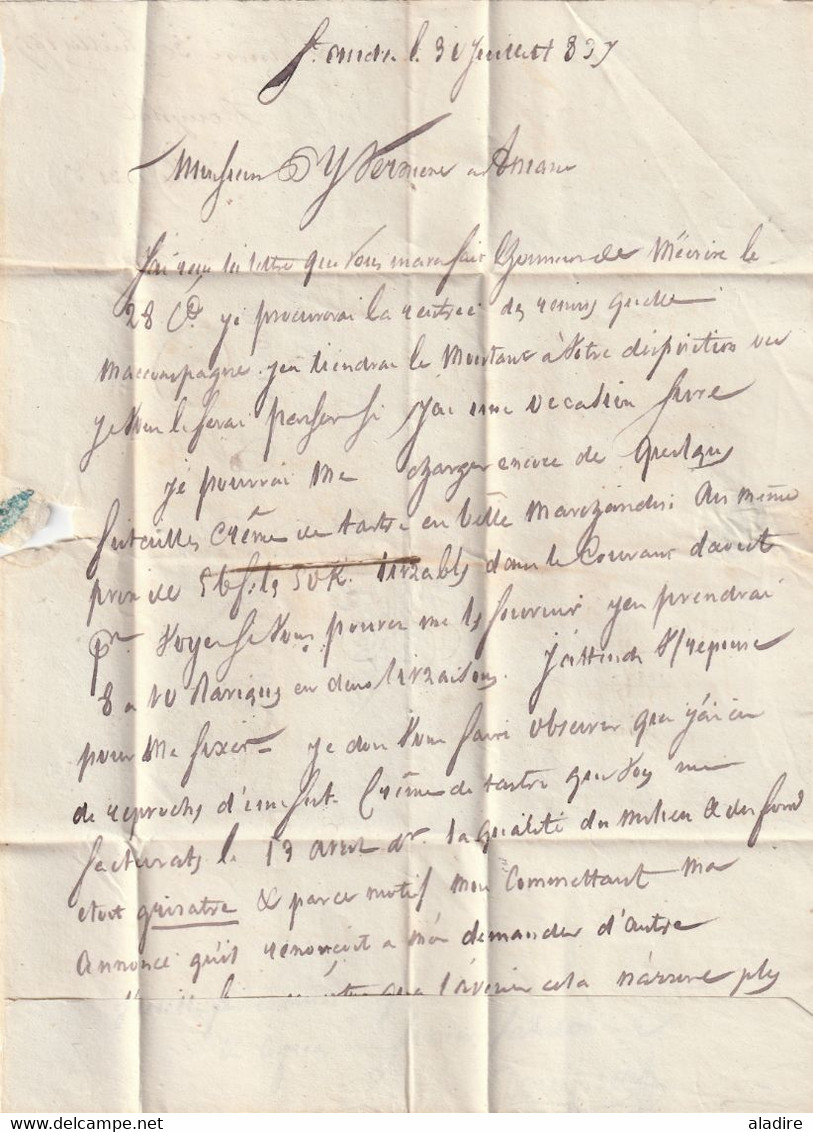 St André le 30 Juillet 1837
Monsieur D Y Verniere a Aniane
J'ai reçu la lettre que Vous mavez fait Lhonneur de M'écrire le
28 Ct. je procurerai la rentrée des remises quelle
maccompagne. jen tiendrai le Montant à Votre disposition ou
je Vous le ferai passer si j'ai une occation sure
je pourrai me charger encore de Quelques
futailles Crême de tartre en belle marchandise Au même
prix de f les 50 K. livrables dans le Courant daout
pn Voyez si Vous pouvez me les fournir jen prendrai
8 a 10 Bariques en deux livraisons. J'attends V/ reponse
pour Me fixer = je dois Vous faire observer que j'ai eu
de reproches d'une fut. Crême de tartre que Vous me
facturates le 13 avril dr. la qualité du milieu & du fond
etoit grisatre & par ce motif mon Commettant ma
Annoncé qu'il renoncoit a m'en demander d'Autre
que l'avenir cela n'arrive plus
aladire